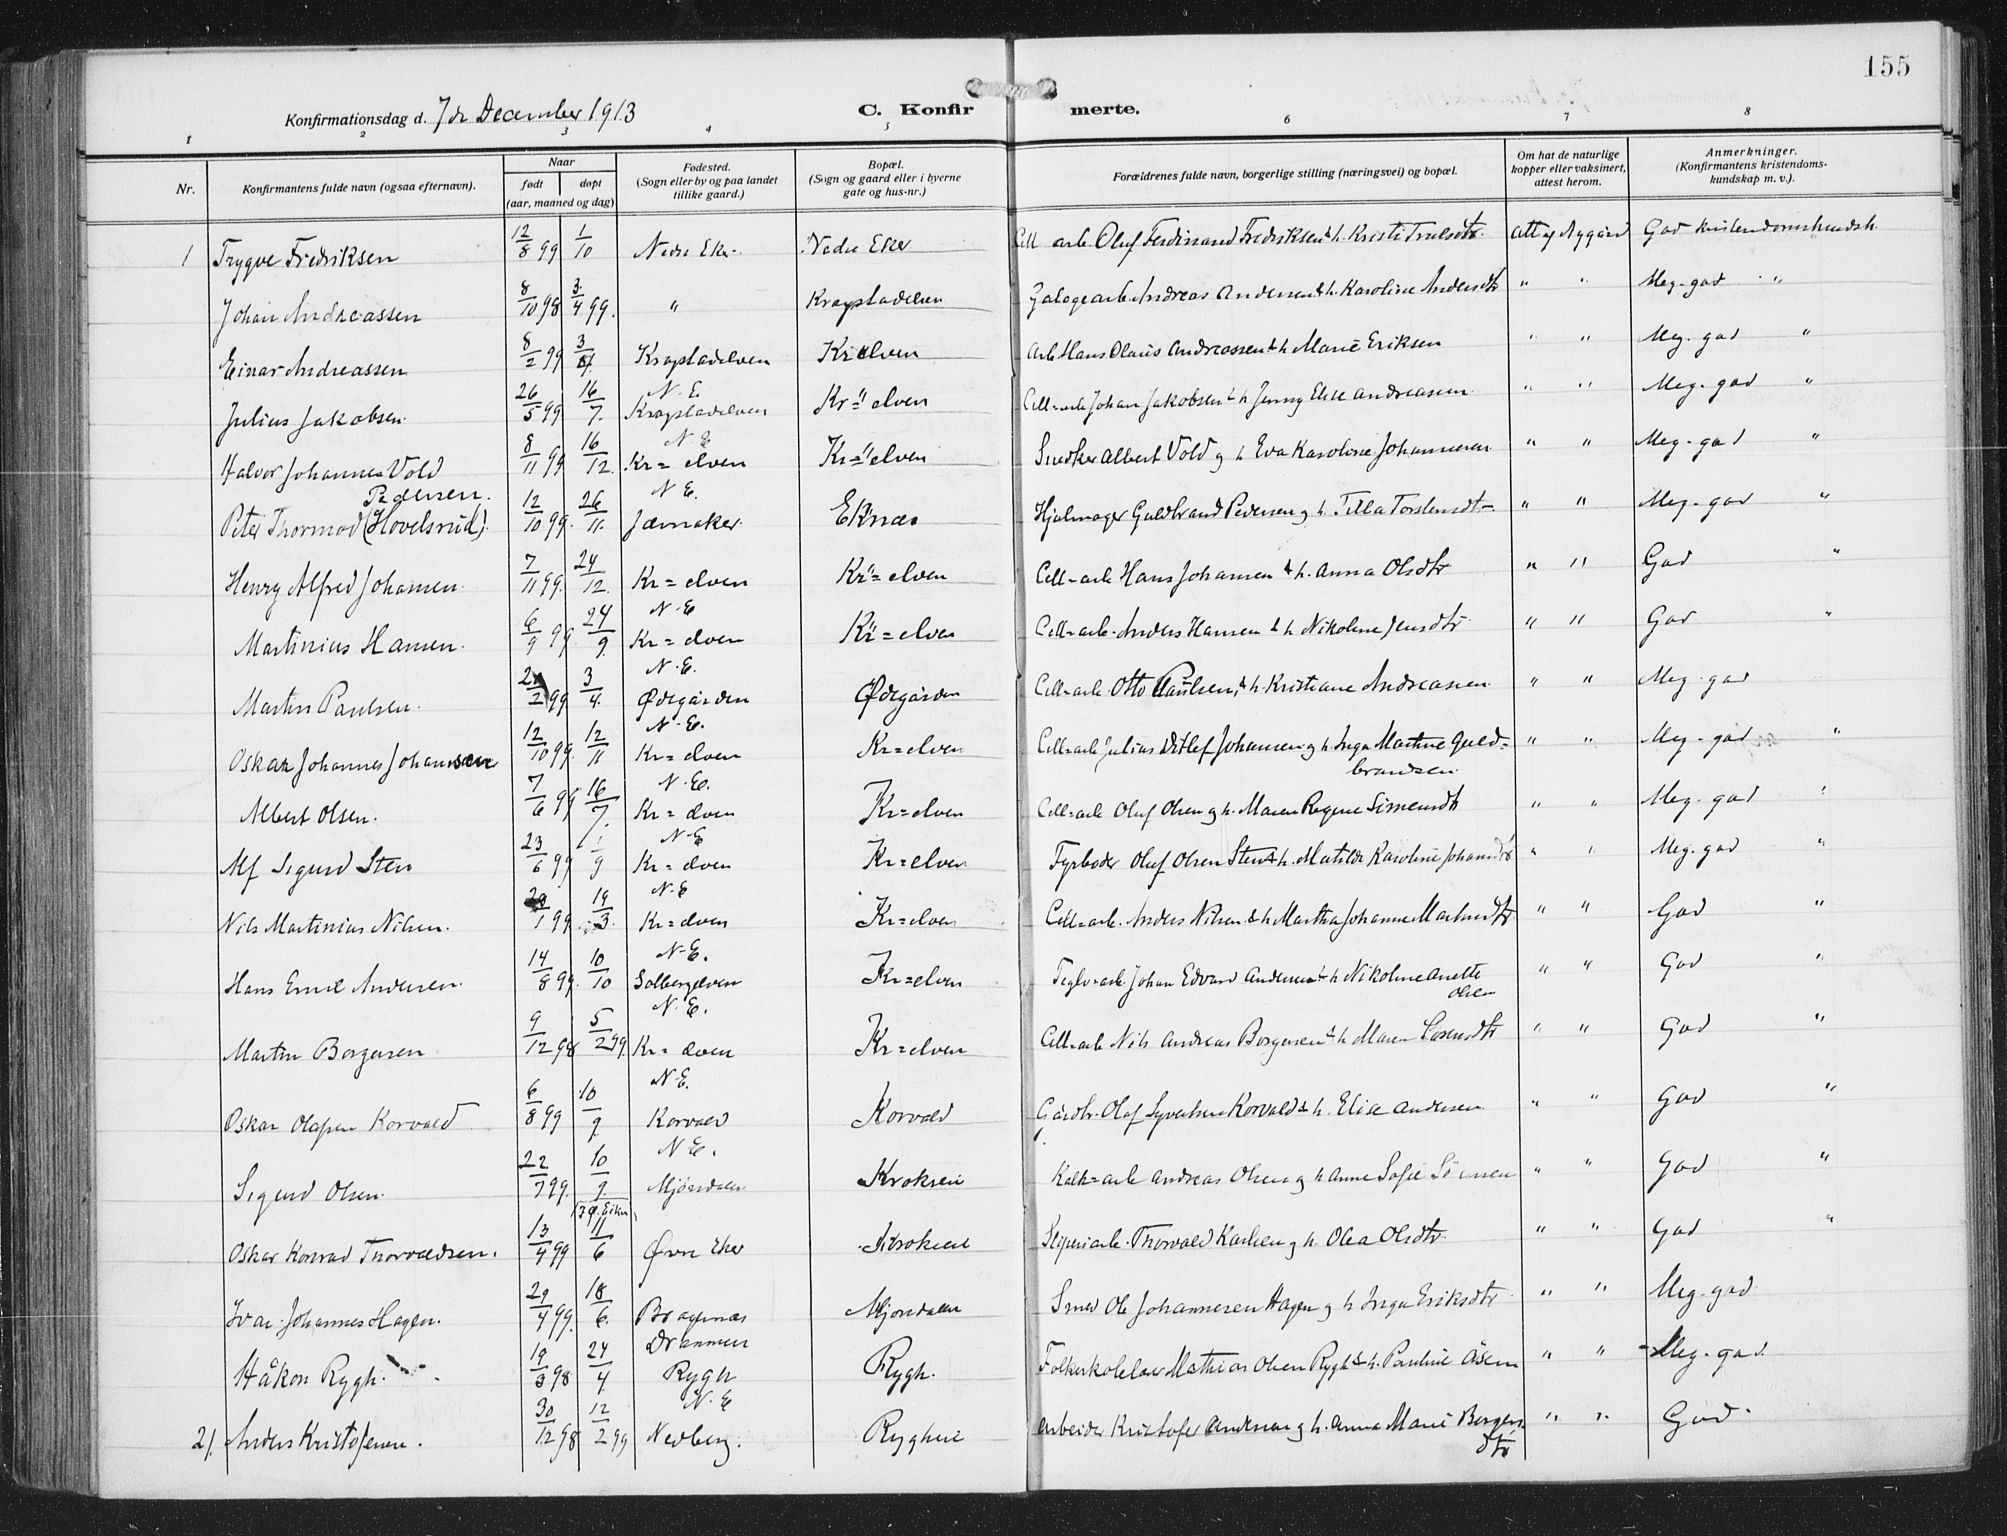 155
Konfirmationsdag d. 7de December 1913 C. Konfirmerte.
1 2 3 4 5 6 7 8
Nr. Konfirmantens fulde navn (ogsaa efternavn). Naar født døpt (aar, maaned og dag) Fødested. (Sogn eller by og paa landet tillike gaard.) Bopæl. (Sogn og gaard eller i byerne gate og hus-nr.) Forældrenes fulde navn, borgerlige stilling (næringsvei) og bopæl. Om hat de naturlige kopper eller vaksinert, attest herom. Anmerkninger. (Konfirmantens kristendomskundskap m. v.).
1 Trygve Fredriksen 12/8 99 1/10 Nedre Eker Nedre Eker Cell arb. Oluf Ferdinand Fredriksen & h. Kristi Trulsdtr. att af Nygård God kristendomskundsk.
Johan Andreassen 8/10 98 3/4 99. " Krogstadelven arb. Andreas Andersen & h. Karoline Andersdtr " " Meg. god "
Einar Andreassen 8/2 99 3/ Krogstadelven Kr elven Arb Hans Olaus Andreassen & h Marie Eriksen " " Meg. god "
Julius Jakobsen. 26/5 99 16/7. N. E. Krogstadelven Kr= elven Cell=arb Johan Jakobsen & h Jenny Elise Andreasen " " Meg. god "
Halvor Johannes Vold 8/11 99 16/12 N E Kr= elven Kr= elven Snedker Albert Vold og h Eva Karoline Johannesen " " Meg. god "
Peter Thormod Pedersen. (Hovelsrud). 12/10 99. 26/11. N E. Jævnaker Eknæs Hjulmager Guldbrand Pedersen og h. Tilla Torstensdtr " " Meg. god "
Henry Alfred Johansen. 7/11 99. 24/12. Kr= elven Kr= elven Cell=arb Hans Johansen & h. Anna Olsdtr " " God "
Martinius Hansen. 6/9 99. 24/9. N. E Kr= elven Kr= elven Cell=arb. Anders Hansen & h Nikoline Jensdtr " " God "
Martin Paulsen. 2/99 3/4. N. E. Ødegården Ødegården Cell=arb. Otto Paulsen, & h. Kristiane Andreasen " " Meg. god
Oskar Johannes Johannsen 12/10 99. 12/11 N. E. Kr= elven Kr=elven Cell=arb Julius Ditlef Johansen og h. Inga Martine Guld=
brandsen. " " Meg. god "
Albert Olsen. 7/6 99 16/7 N. E. Kr= elven Kr=elven Cell=arb Oluf Olsen og h. Maren Regine Simensdtr " " Meg. god "
Alf Sigurd Sten 23/6 99 1/9 N. E Kr= elven Kr=elven Fyrbøder Oluf Olsen Sten & h. Matilde Karoline Johansdtr " " Meg. god "
Nils Martinius Nilsen. /1 99. 19/3. N. E Kr= elven Kr=elven Cell=arb. Anders Nilsen & h Martha Johanne Martinsdtr " " God "
Hans Emil Andersen. 14/8 99. 10/10 N. E. Solbergelven Kr=elven Teglv=arb. Johan Edvard Andersen & h Nikoline Anette
Olsen " " God "
Martin Borgersen 9/12 98 5/2 99. N. E. Kr= elven Kr=elven Cell=arb Nils Andreas Borgersen & h Maren Larsendtr " " God "
Oskar Olafsen Korvald 6/8 99 10/9. N. E. Korvald Korvald Gårdbr. Olaf Syvertsen Korvald & h. Elise Andersen " " God "
Sigurd Olsen. 22/7 99. 10/9. N E. Mjøndalen Krokseie Kalk=arb Andreas Olsen og h Anne Sofie " " God "
Oskar Konrad Thorvaldsen. 13/4 99 11/6 Øvre Eker Krokseie Sliperiarb. Thorvald Karlsen og h. Olea Olsdtr " " God "
Ivar Johannes Hagen. 29/4 99. 18/6. Bragernæs
Drammen Mjøndalen Smed Ole Johannesen Hagen og h Inga Eriksdtr " " Meg. god
Håkon Rygh. 19/3 98. 24/4 Rygh Rygh. Folkeskolelærer Mathias Olsen Rygh & h. Pauline Åsen " " Meg. god.
21. Anders Kristofersen. 30/12 98 12/2 99 N. E Nedberg. Rygheie Arbeider Kristofer Andersen og h. Anna Marie Borgers
dtr " " God.